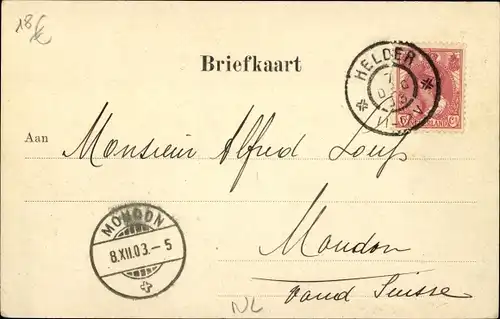 18 €
Briefkaart
HELDER
7 DEC 03
VI-V
NEDERLAND
Aan
Monsieur Alfred
Moudon
Vaud Suisse
MOUDON
8.XII.03.-5
NL